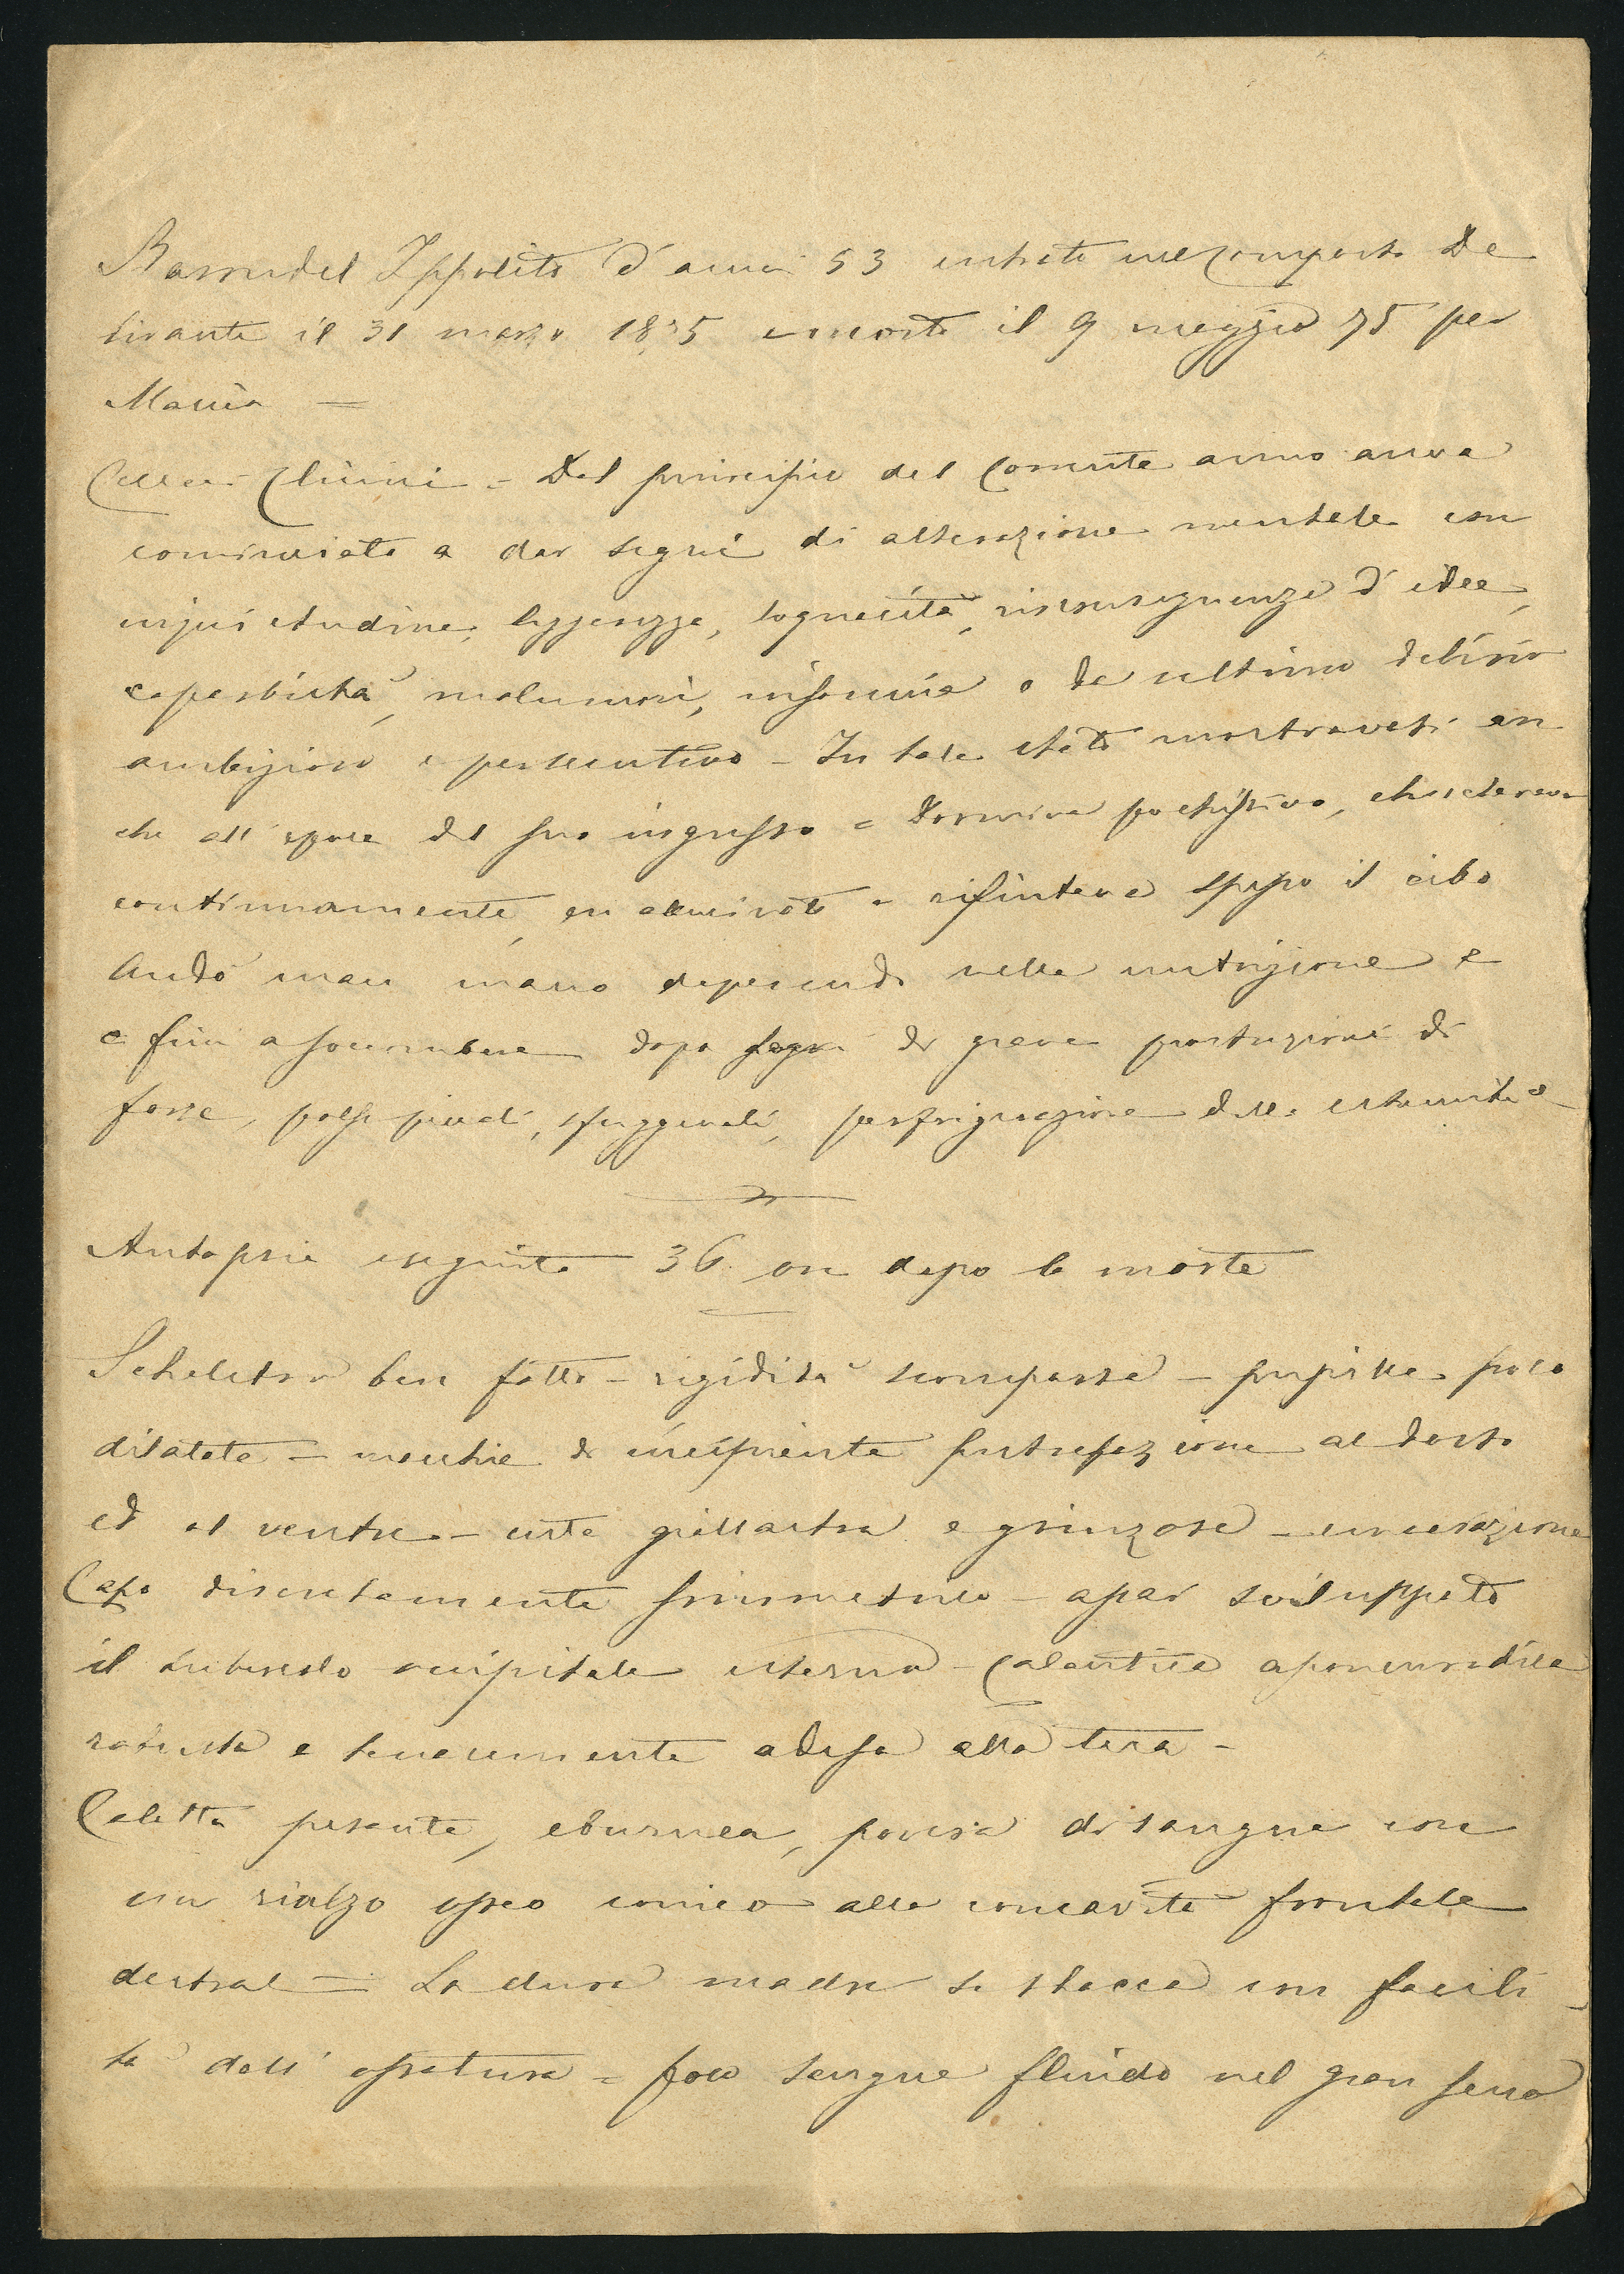 Ippolito d'anni 53 entrato nel comparto De
lirante il 31 marzo 1875 e morto il 9 maggio 75 per
Mania =
Cenni Clinici = Dal principio del corrente anno aveva
cominciato a dar segni di alterazione mentale con
inquietudine, leggerezza, loquacità, inconseguenza d'idee,
caparbietà, malumori, insonnia e da ultimo delirio
ambizioso e persecutivo - In tale stato mostravasi an
che all'epoca del suo ingresso = Dormiva pochissimo, chiacchierava
continuamente, era e rifiutava spesso il cibo
Andò man mano deperendo nella nutrizione e
e finì a soccombere dopo segni di grave prostrazione di
forze, polsi piccoli, sfuggevoli, perfrigerazione delle estremità
Autopsia eseguita 36 ore dopo la morte
Scheletro ben fatto - rigidità scomparsa - pupille poco
dilatate - macchie di incipiente putrefazione al dorso
ed al ventre - cute giallastra e grinzosa -
Capo discretamente simmetrico - assai sviluppato
il tubercolo occipitale esterno - Calantica aponeurotica
robusta e tenacemente adesa alla teca -
Calotta pesante, eburnea, povera di sangue con
un rialzo osseo conico alla concavità frontale
destra = La dura madre si stacca con facili
tà dall'ossatura = poco sangue fluido nel gran seno